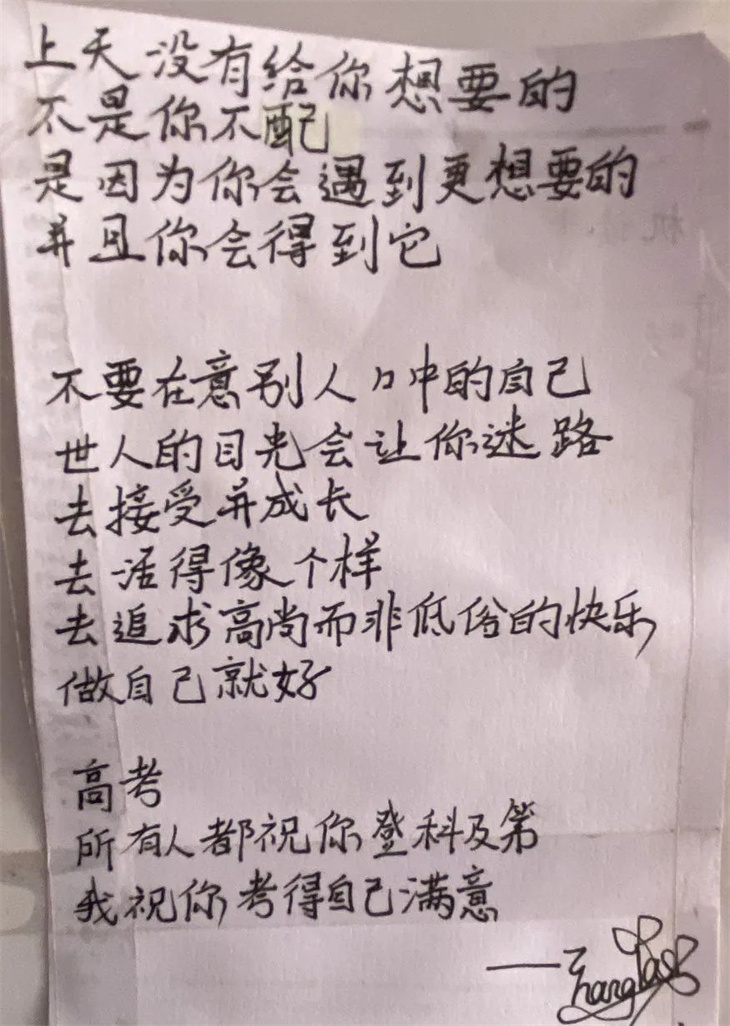 上天没有给你想要的
不是你不配
是因为你会遇到更想要的
并且你会得到它
不要在意别人口中的自己
世人的目光会让你迷路
去接受并成长
去活得像个样
去追求高尚而非低俗的快乐
做自己就好
高考
所有人都祝你登科及第
我祝你考得自己满意